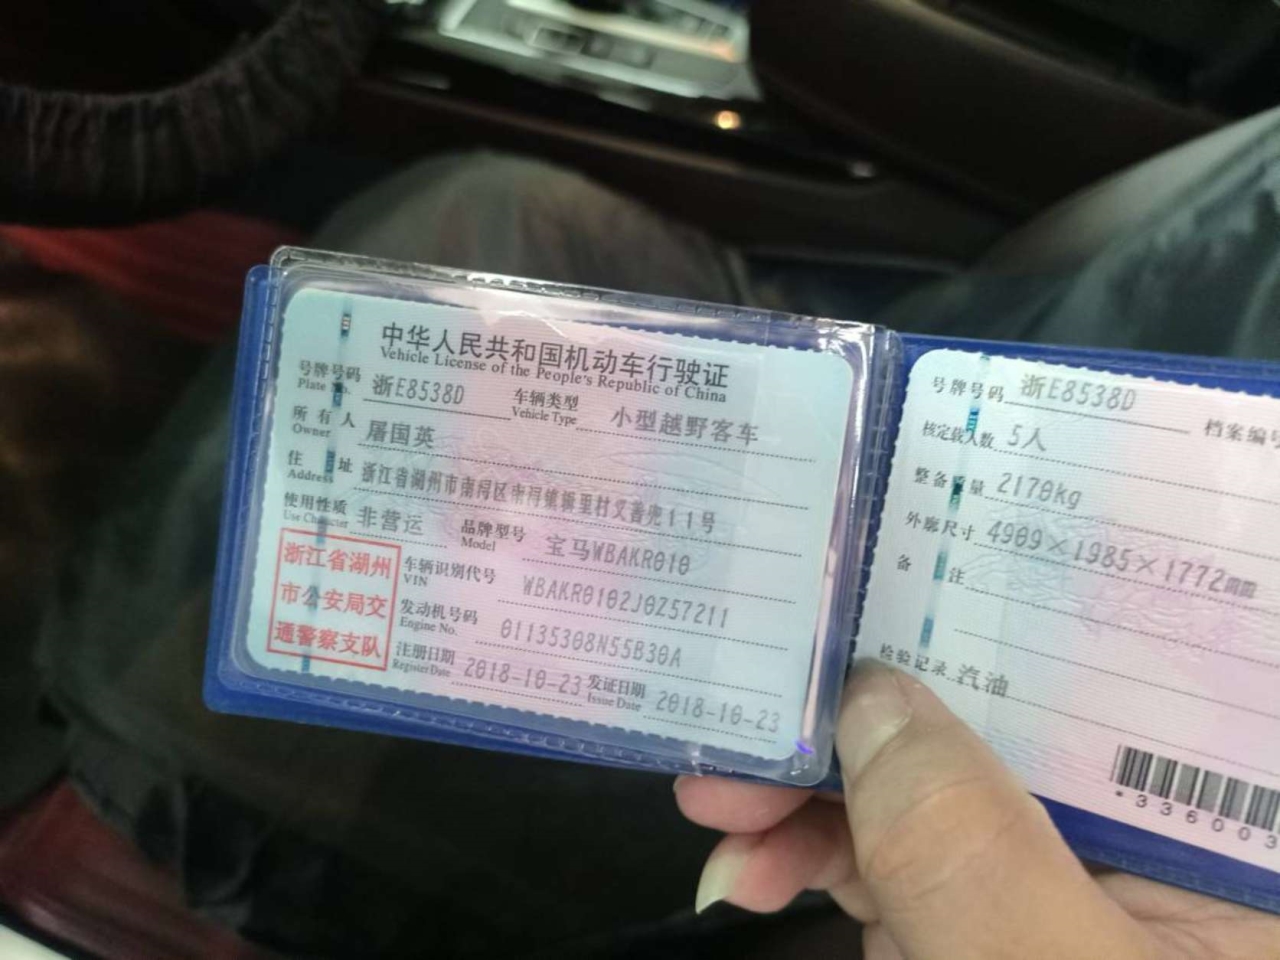 中华人民共和国机动车行驶证
Vehicle License of the People's Republic of China
号牌号码 浙E8538D 车辆类型 小型越野客车
Plate Vehicle Type
所有人 屠国英
Owner
住址 浙江省湖州市南浔区南浔镇 里村 兜11号
Address
使用性质 非营运 品牌型号 宝马WBAKR010
Use Character Model
浙江省湖州
市公安局交
通警察支队
车辆识别代号 WBAKR0102J0Z57211
VIN
发动机号码 01135308N55B30A
Engine No.
注册日期 2018-10-23 发证日期 2018-10-23
Register Date Issue Date
号牌号码 浙E8538D 档案编号
核定载人数 5人
整备质量 2170kg
外廓尺寸 4909×1985×1772mm
备注
检验记录 汽油
*336003